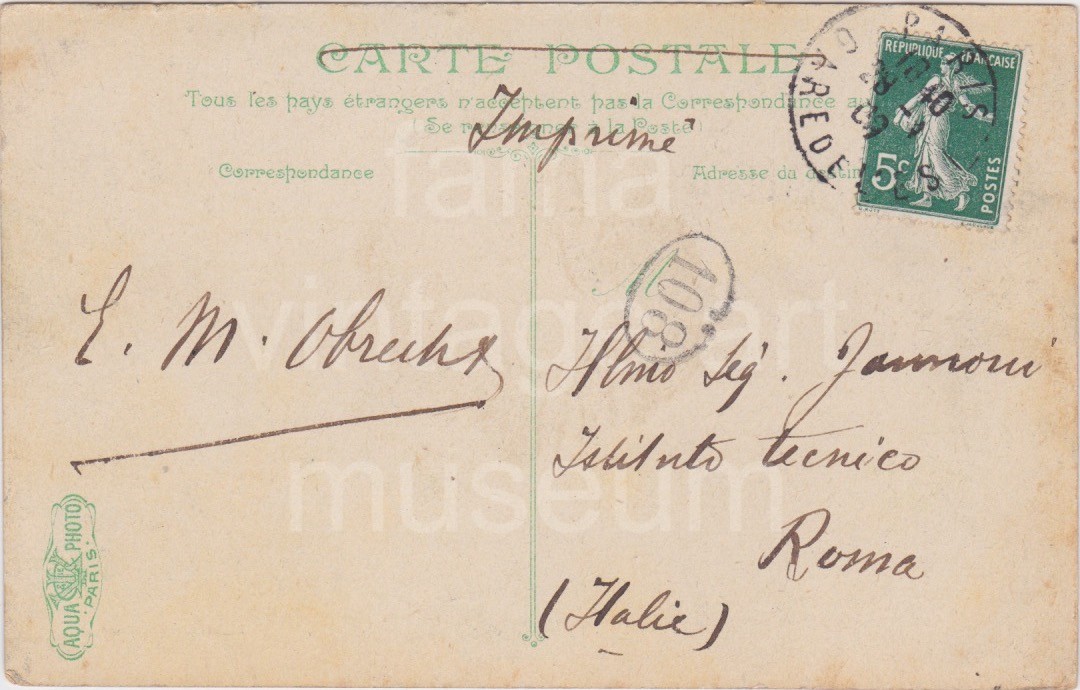 CARTE POSTALE
Tous les pays étrangers n'acceptent pas la Correspondance au
(Se renseigner à la Poste)
Imprimé
Correspondance
Adresse du destin
PARIS
RÉPUBLIQUE FRANÇAISE
5c
POSTES
108
E. M. Obrecht
Illmo Sig. Jannoni
Istituto tecnico
Roma
(Italie)
AQUA PHOTO
PARIS
fama
vintage art
museum